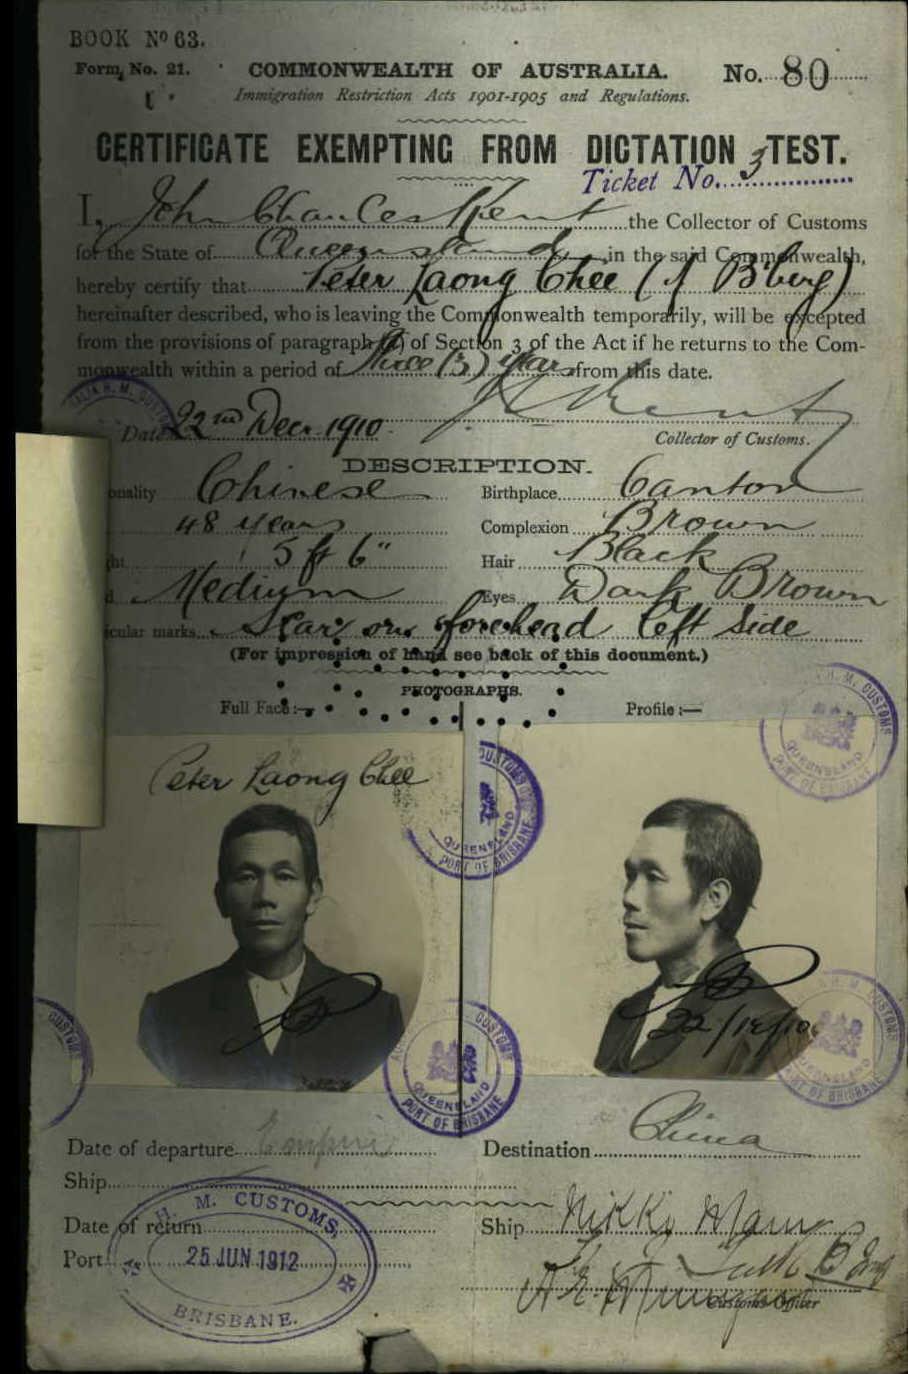 BOOK No 63.
Form No. 21.
COMMONWEALTH OF AUSTRALIA.
No. 80
Immigration Restriction Acts 1901-1905 and Regulations.
CERTIFICATE EXEMPTING FROM DICTATION TEST.
Ticket No. 3
I, John Chances Kent the Collector of Customs
for the State of Queensland in the said Commonwealth,
hereby certify that Peter Laong Chee (of B'berg)
hereinafter described, who is leaving the Commonwealth temporarily, will be excepted
from the provisions of paragraph (a) of Section 3 of the Act if he returns to the Com-
monwealth within a period of Three (3) years from this date.
Date 22nd Decr. 1910
J C Kent
Collector of Customs.
DESCRIPTION.
onality Chinese
Birthplace Canton
48 years
Complexion Brown
ht 5 ft 6"
Hair Black
d Medium
Eyes Dark Brown
icular marks Scar on forehead left side
(For impression of hand see back of this document.)
PHOTOGRAPHS.
Full Face:—
Profile:—
Peter Laong Chee
H. M. CUSTOMS
QUEENSLAND
PORT OF BRISBANE
22/12/10
Date of departure Empire
Destination China
Ship
Date of return
Ship Nikko Maru
Port
H. M. CUSTOMS,
25 JUN 1912
BRISBANE.
Customs Officer